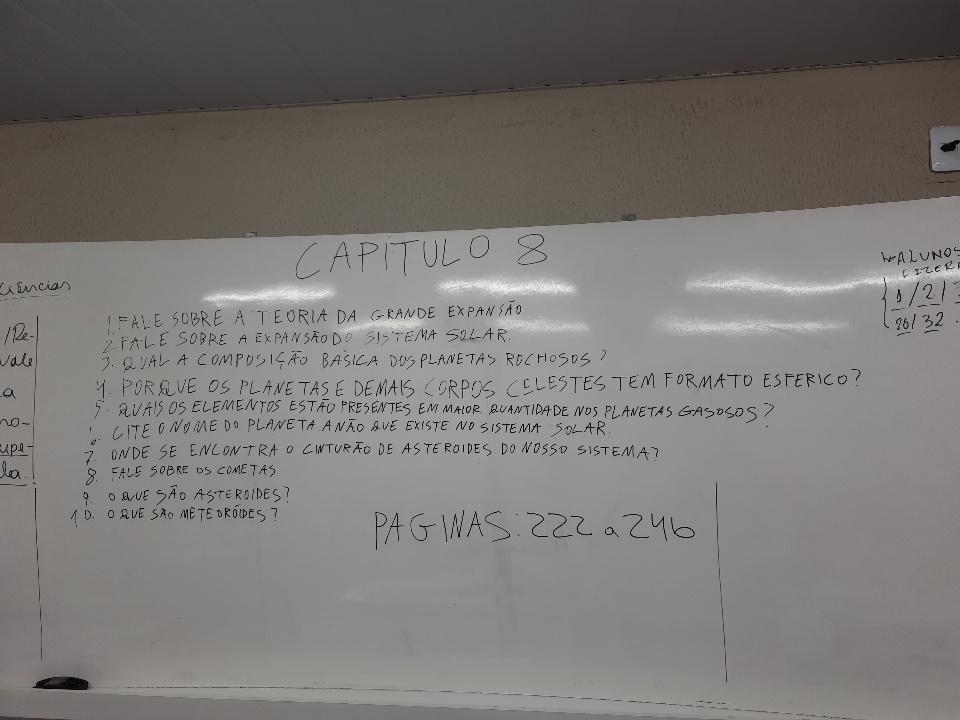 CAPÍTULO 8
Ciências
1. FALE SOBRE A TEORIA DA GRANDE EXPANSÃO
2. FALE SOBRE A EXPANSÃO DO SISTEMA SOLAR.
3. QUAL A COMPOSIÇÃO BÁSICA DOS PLANETAS ROCHOSOS?
4. PORQUE OS PLANETAS E DEMAIS CORPOS CELESTES TEM FORMATO ESFERICO?
5. QUAIS OS ELEMENTOS ESTÃO PRESENTES EM MAIOR QUANTIDADE NOS PLANETAS GASOSOS?
6. CITE O NOME DO PLANETA ANÃO QUE EXISTE NO SISTEMA SOLAR.
7. ONDE SE ENCONTRA O CINTURÃO DE ASTEROIDES DO NOSSO SISTEMA?
8. FALE SOBRE OS COMETAS
9. O QUE SÃO ASTEROIDES?
10. O QUE SÃO METEORÓIDES?
PAGINAS: 222 a 246
ALUNOS
1/2/
/32